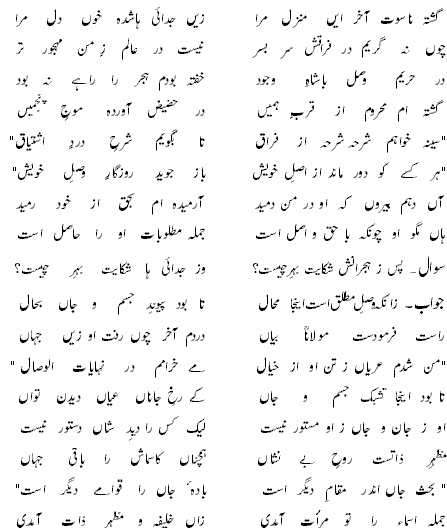 گشتہ ناسوت آخر ایں منزل مرا زیں جدائی ہا شدہ خوں دل مرا
چوں نہ گریم در فراقش سر بسر نیست در عالم ز من مہجور تر
در حریم وصل باشاہ وجود خفتہ بودم ہجر را راہے نہ بود
گشتہ ام محروم از قرب ہمیں در حضیض آوردہ موج پنجمیں
"سینہ خواہم شرحہ شرحہ از فراق تا بگویم شرح درد اشتیاق"
"ہر کسے کو دور ماند از اصل خویش باز جوید روزگار وصل خویش"
آں دہم بیروں کہ او در من دمید آرمیدہ ام بحق از خود رمید
ہاں مگو او چونکہ با حق واصل است جملہ مطلوبات او را حاصل است
سوال۔ پس ز ہجرانش شکایت بہر چیست؟ وز جدائی ہا شکایت بہر چیست؟
جواب۔ زانکہ وصل مطلق است اینجا محال تا بود پیوند جسم و جاں بحال
راست فرمودست مولاناؒ بیاں دردم آخر چوں رفت او زیں جہاں
"من شدم عریاں ز تن او از خیال مے خرامم در نہایات الوصال"
تا بود اینجا تشبک جسم و جاں کے رخ جاناں عیاں دیدن تواں
او ز جان و جاں ز او مستور نیست لیک کس را دید شاں دستور نیست
مظہر ذاتست روح بے نشاں ہمچناں کاسماش را باقی جہاں
"بحث جاں اندر مقام دیگر است بادۂ جاں را قوامے دیگر است"
جملہ اسماء را تو مرأت آمدی زاں خلیفہ و مظہر ذات آمدی